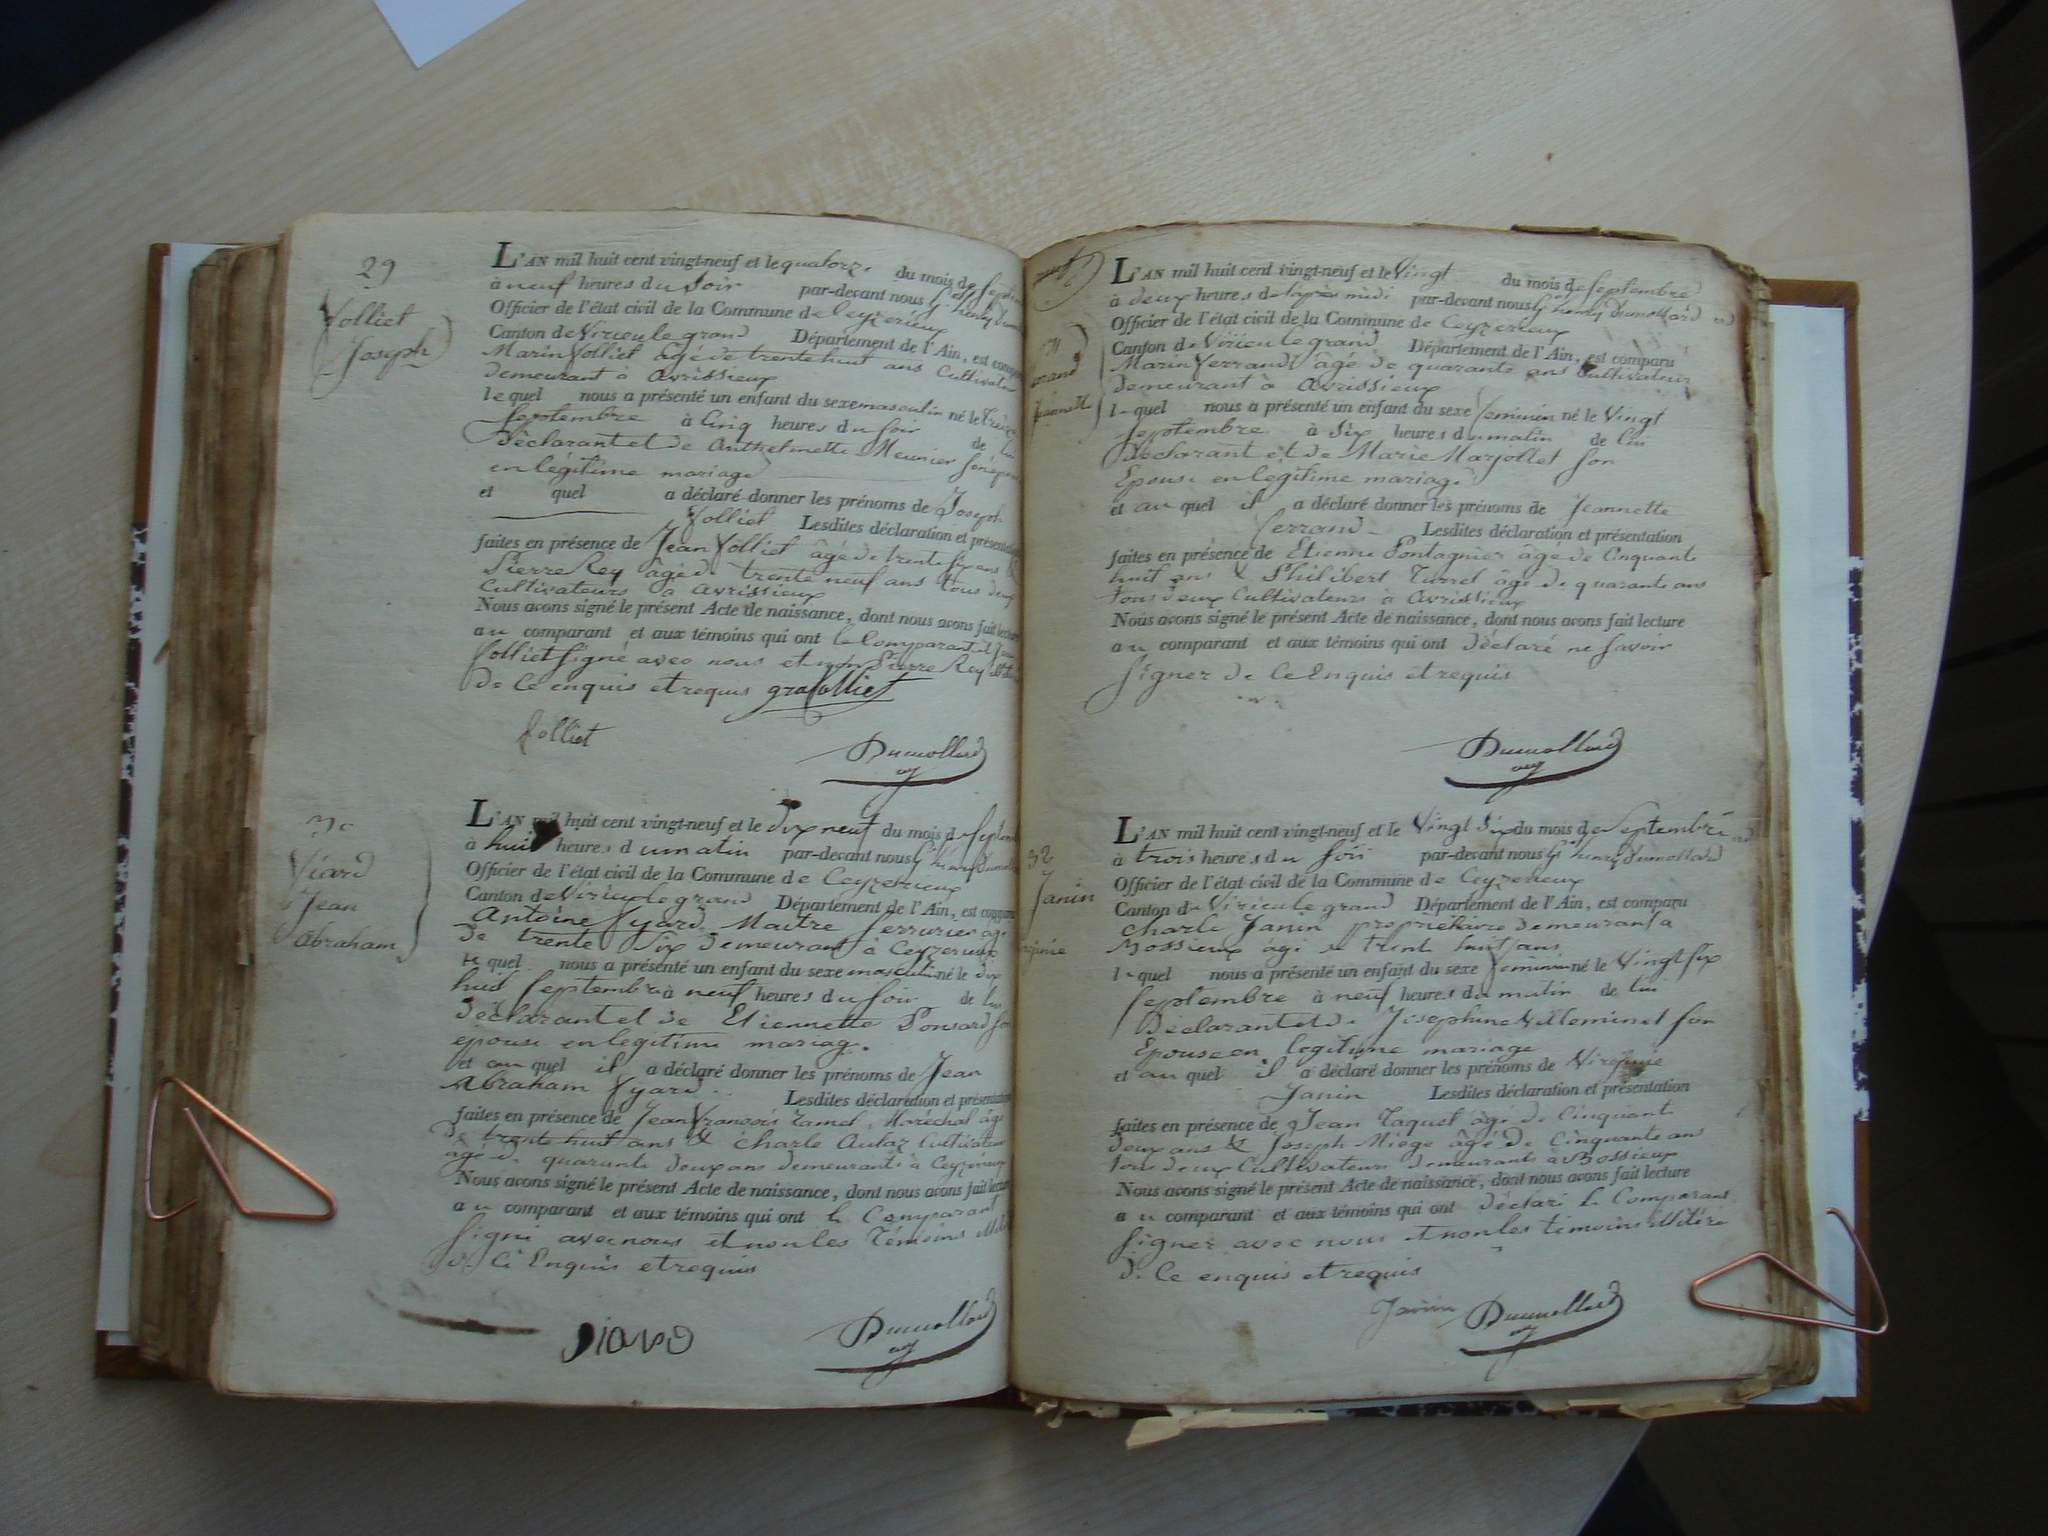 29
Jolliet
Joseph
L'AN mil huit cent vingt-neuf et le quatorze du mois de
à neuf heures du soir par-devant nous
Officier de l'état civil de la Commune de Ceyzerieux
Canton de Virieu le grand Département de l'Ain, est
Marin Jolliet âgé de trente huit ans Cultivateur
demeurant à Avrissieux
lequel nous a présenté un enfant du sexe masculin né le treize
septembre à Cinq heures du soir de lui
Déclarant et de Anthelmette Meunier
en légitime mariage
et quel a déclaré donner les prénoms de Joseph
Jolliet Lesdites déclaration et
faites en présence de Jean Jolliet âgé de trente six ans &
Pierre Rey âgé de trente neuf ans tous deux
Cultivateurs à Avrissieux
Nous avons signé le présent Acte de naissance, dont nous avons fait lecture
au comparant et aux témoins qui ont le Comparant et
Jolliet signé avec nous et non Pierre Rey
de Ce enquis et requis
Jolliet
Dumollard
30
Viard
Jean
Abraham
L'AN mil huit cent vingt-neuf et le Dix neuf du mois de
à huit heures du matin par-devant nous
Officier de l'état civil de la Commune de Ceyzerieux
Canton de Virieu le grand Département de l'Ain, est comparu
Antoine Vyard Maitre Serrurier âgé
de trente Six demeurant à Ceyzerieux
lequel nous a présenté un enfant du sexe masculin né le dix
huit Septembre à neuf heures du soir de lui
Déclarant et de Etiennette Ponsard
epouse en legitime mariage
et au quel il a déclaré donner les prénoms de Jean
Abraham Vyard Lesdites déclaration et
faites en présence de Jean François Ramel, Maréchal âgé
de trente huit ans & Charle Cultivateur
âgé de quarante deux ans demeurants à Ceyzérieux
Nous avons signé le présent Acte de naissance, dont nous avons fait lecture
au comparant et aux témoins qui ont le Comparant
signé avec nous et non les Témoins
de Ce Enquis et requis
Dumollard
L'AN mil huit cent vingt-neuf et le Vingt du mois de septembre
à deux heures de laprès midi par-devant nous henry Dumollard
Officier de l'état civil de la Commune de Ceyzerieux
Canton de Virieu le grand Département de l'Ain, est comparu
Marin Ferrand âgé de quarante ans Cultivateur
demeurant à Avrissieux
lequel nous a présenté un enfant du sexe feminin né le Vingt
septembre à Six heures du matin de lui
Déclarant et de Marie Marjollet son
Epouse en légitime mariage
et au quel il a déclaré donner les prénoms de Jeannette
ferrand Lesdites déclaration et présentation
faites en présence de Etienne Pontagnier âgé de Cinquante
huit ans & Philibert Turrel âgé de quarante ans
tous deux Cultivateurs à Avrissieux
Nous avons signé le présent Acte de naissance, dont nous avons fait lecture
au comparant et aux témoins qui ont déclaré ne savoir
signer de Ce Enquis et requis
Dumollard
32
Janin
L'AN mil huit cent vingt-neuf et le Vingt Six du mois de Septembre
à trois heures du soir par-devant nous henry Dumollard
Officier de l'état civil de la Commune de Ceyzerieux
Canton de Virieu le grand Département de l'Ain, est comparu
Charle Janin propriétaire demeurant à
Bossieux âgé de trent huit ans
lequel nous a présenté un enfant du sexe feminin né le Vingt six
septembre à neuf heures du matin de lui
Déclarant et de Josephine Villeminet son
Epouse en legitime mariage
et au quel il a déclaré donner les prénoms de Virginie
Janin Lesdites déclaration et présentation
faites en présence de Jean Taquet âgé de Cinquant
deux ans & Joseph Miege âgé de Cinquante ans
tous deux Cultivateurs demeurants à Bossieux
Nous avons signé le présent Acte de naissance, dont nous avons fait lecture
au comparant et aux témoins qui ont déclaré le Comparant
signer avec nous et non les témoins
de Ce enquis et requis
Janin Dumollard